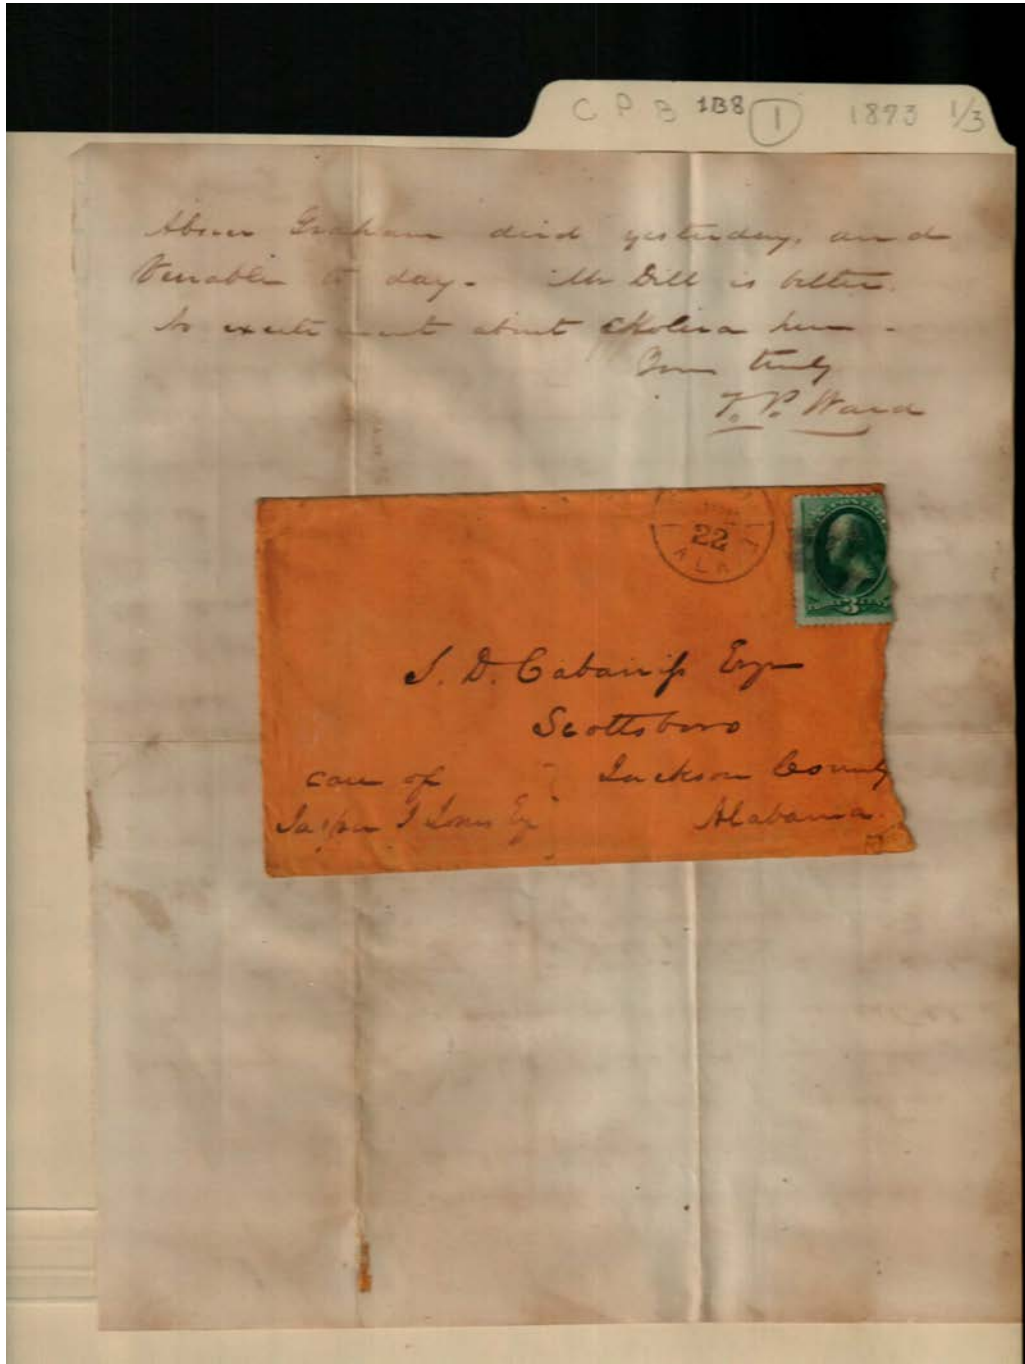 C P B 1B8 1 1873 1/3
Abner Graham died yesterday, and
Venable to day - Mr Dill is better.
No excitement about Cholera here -
Yours truly
T. P. Ward
22
ALA
S. D. Cabaniss Esqr
Scottsboro
Jackson County
Alabama
care of
Jones Esq
3